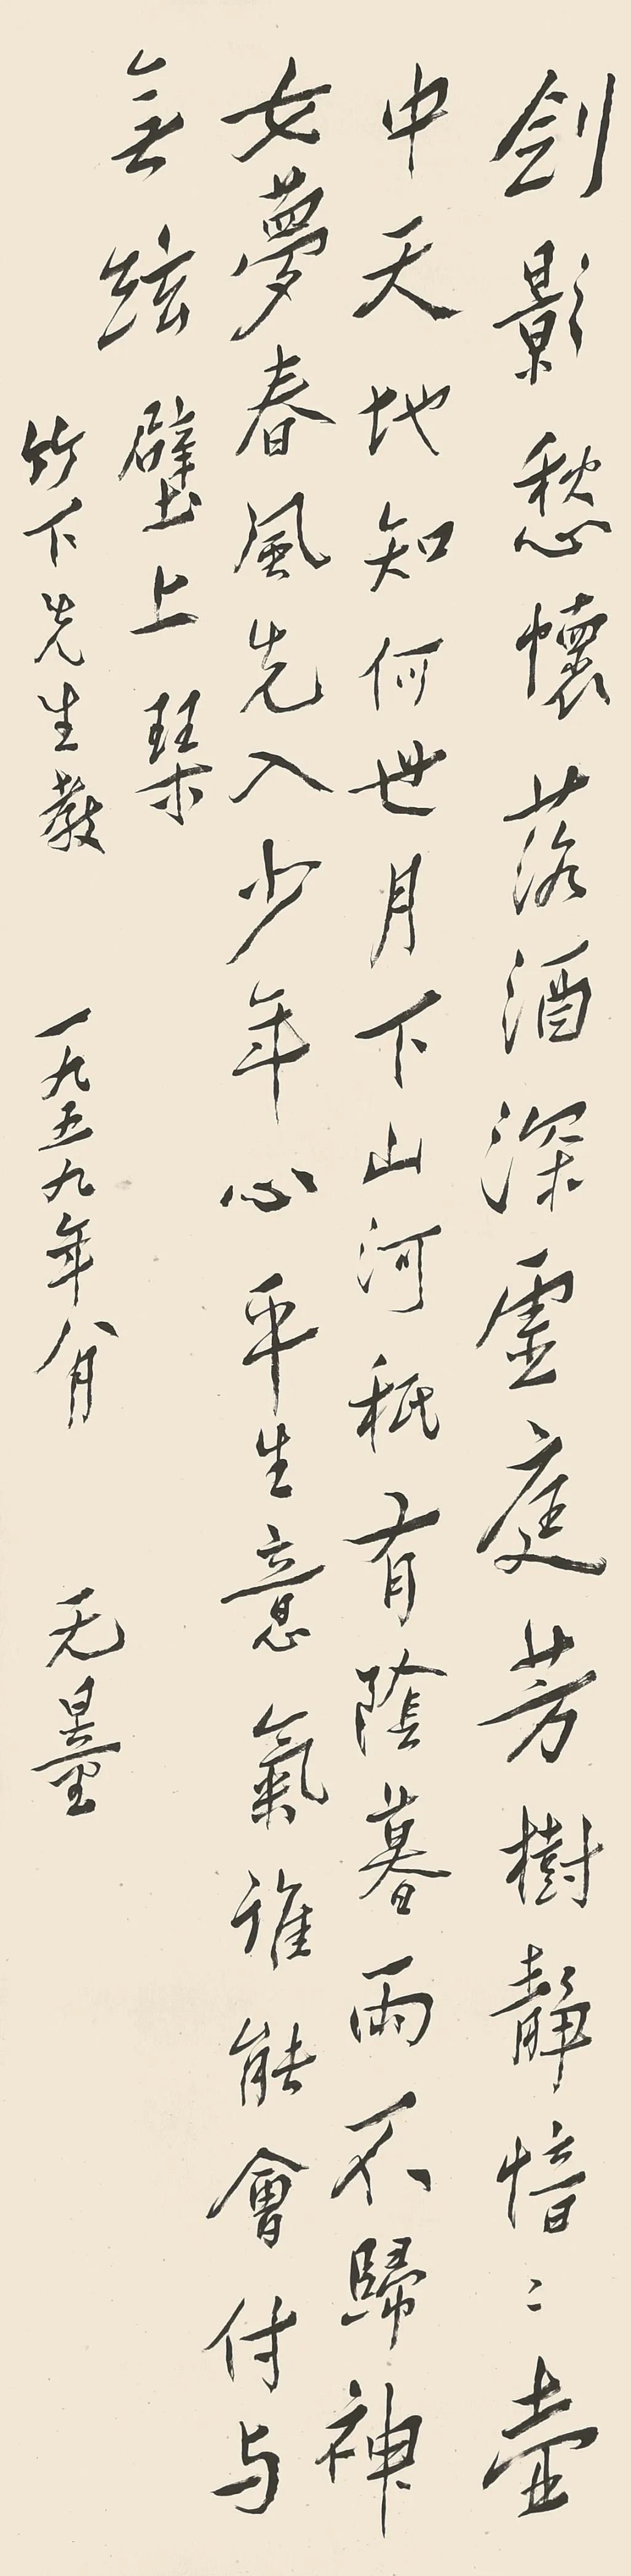 劍影愁懷落酒深靈庭芳樹靜愔〻壺
中天地知何世月下山河秖有陰暮雨不歸神
女夢春風先入少年心平生意氣誰能會付与
無絃壁上琹
竹下先生教 一九五九年八月 无量